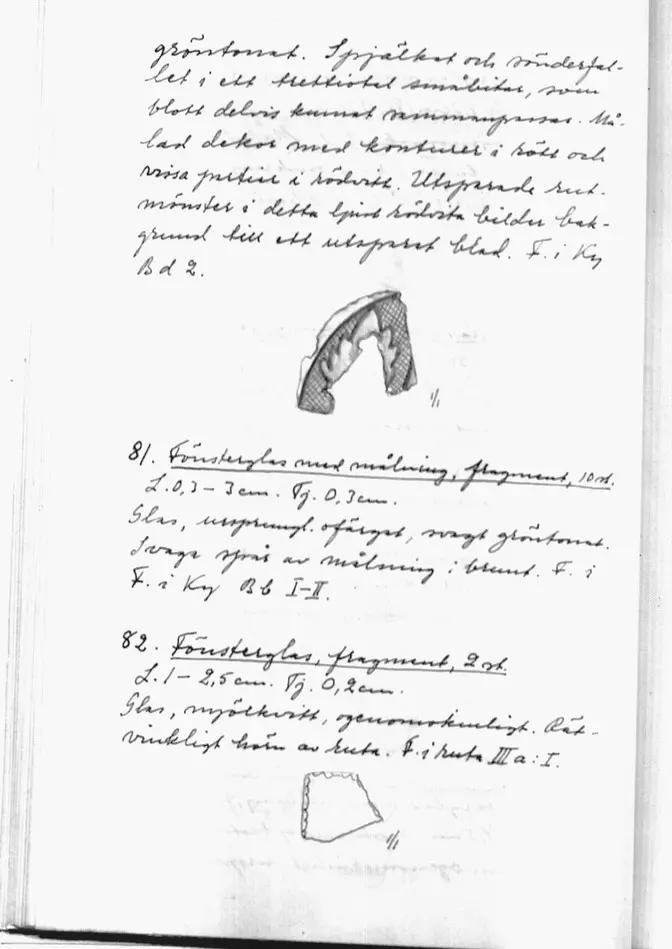 gröntonat. Spjälkat och sönderfal-
let i ett trettiotal småbitar, som
blott delvis kunnat sammanpassas. Må-
lad dekor med konturer i rött och
vissa partier i rödvitt. Utsparade rut-
mönster i detta ljust rödvita bilder bak-
grund till ett utsparat blad. F. i Ky
Bd 2.
1/1
81. Fönsterglas med målning, fragment, 10 st.
L. 0,3 - 3 cm. Tj. 0,3 cm.
Glas, ursprungl. ofärgat, svagt gröntonat.
Svaga spår av målning i brunt. F. i
F. i Ky Bb I-II.
82. Fönsterglas, fragment, 2 st.
L. 1 - 2,5 cm. Tj. 0,2 cm.
Glas, mjölkvitt, ogenomskinligt. Rät-
vinkligt hörn av ruta. F. i ruta III a: I.
1/1